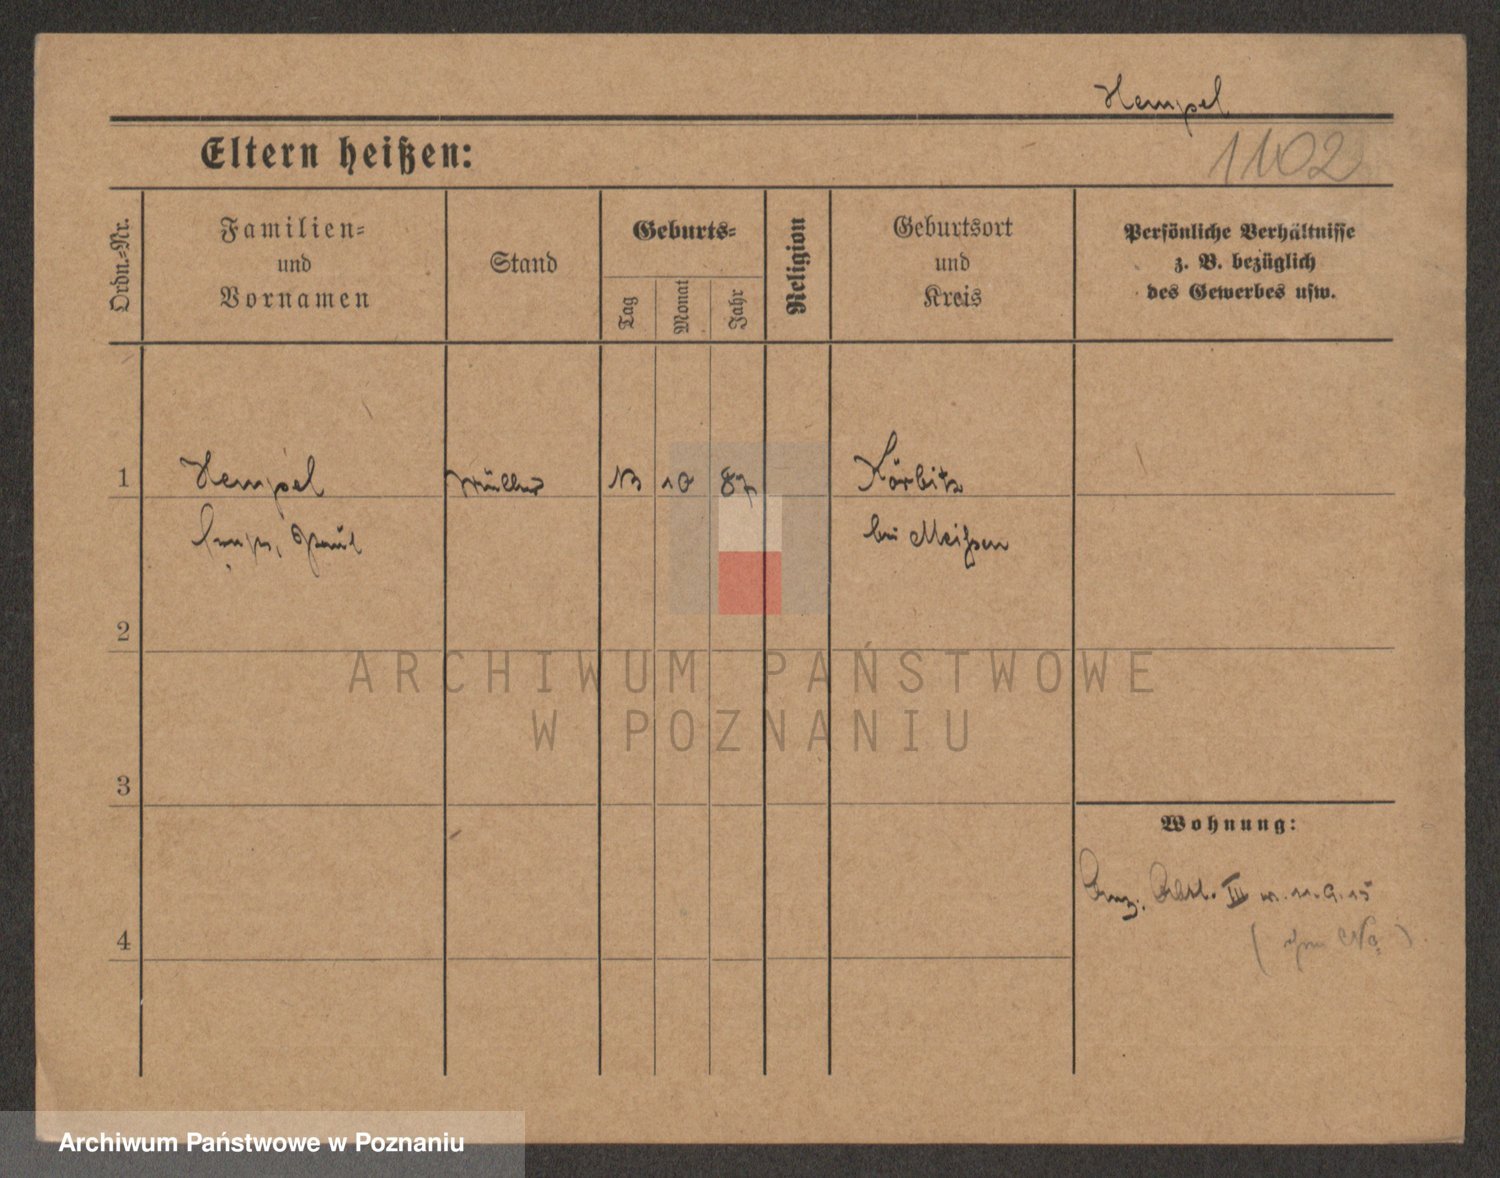 Hempel
Eltern heißen:
1102
Ordn.=Nr.
Familien=
und
Vornamen
Stand
Geburts=
Tag
Monat
Jahr
Religion
Geburtsort
und
Kreis
Persönliche Verhältnisse
z. B. bezüglich
des Gewerbes usw.
1
Hempel
Müller
13
10
87
Körbitz
Paul
bei Meißen
2
ARCHIWUM PAŃSTWOWE
W POZNANIU
3
Wohnung:
III
11.9.15
4
Archiwum Państwowe w Poznaniu